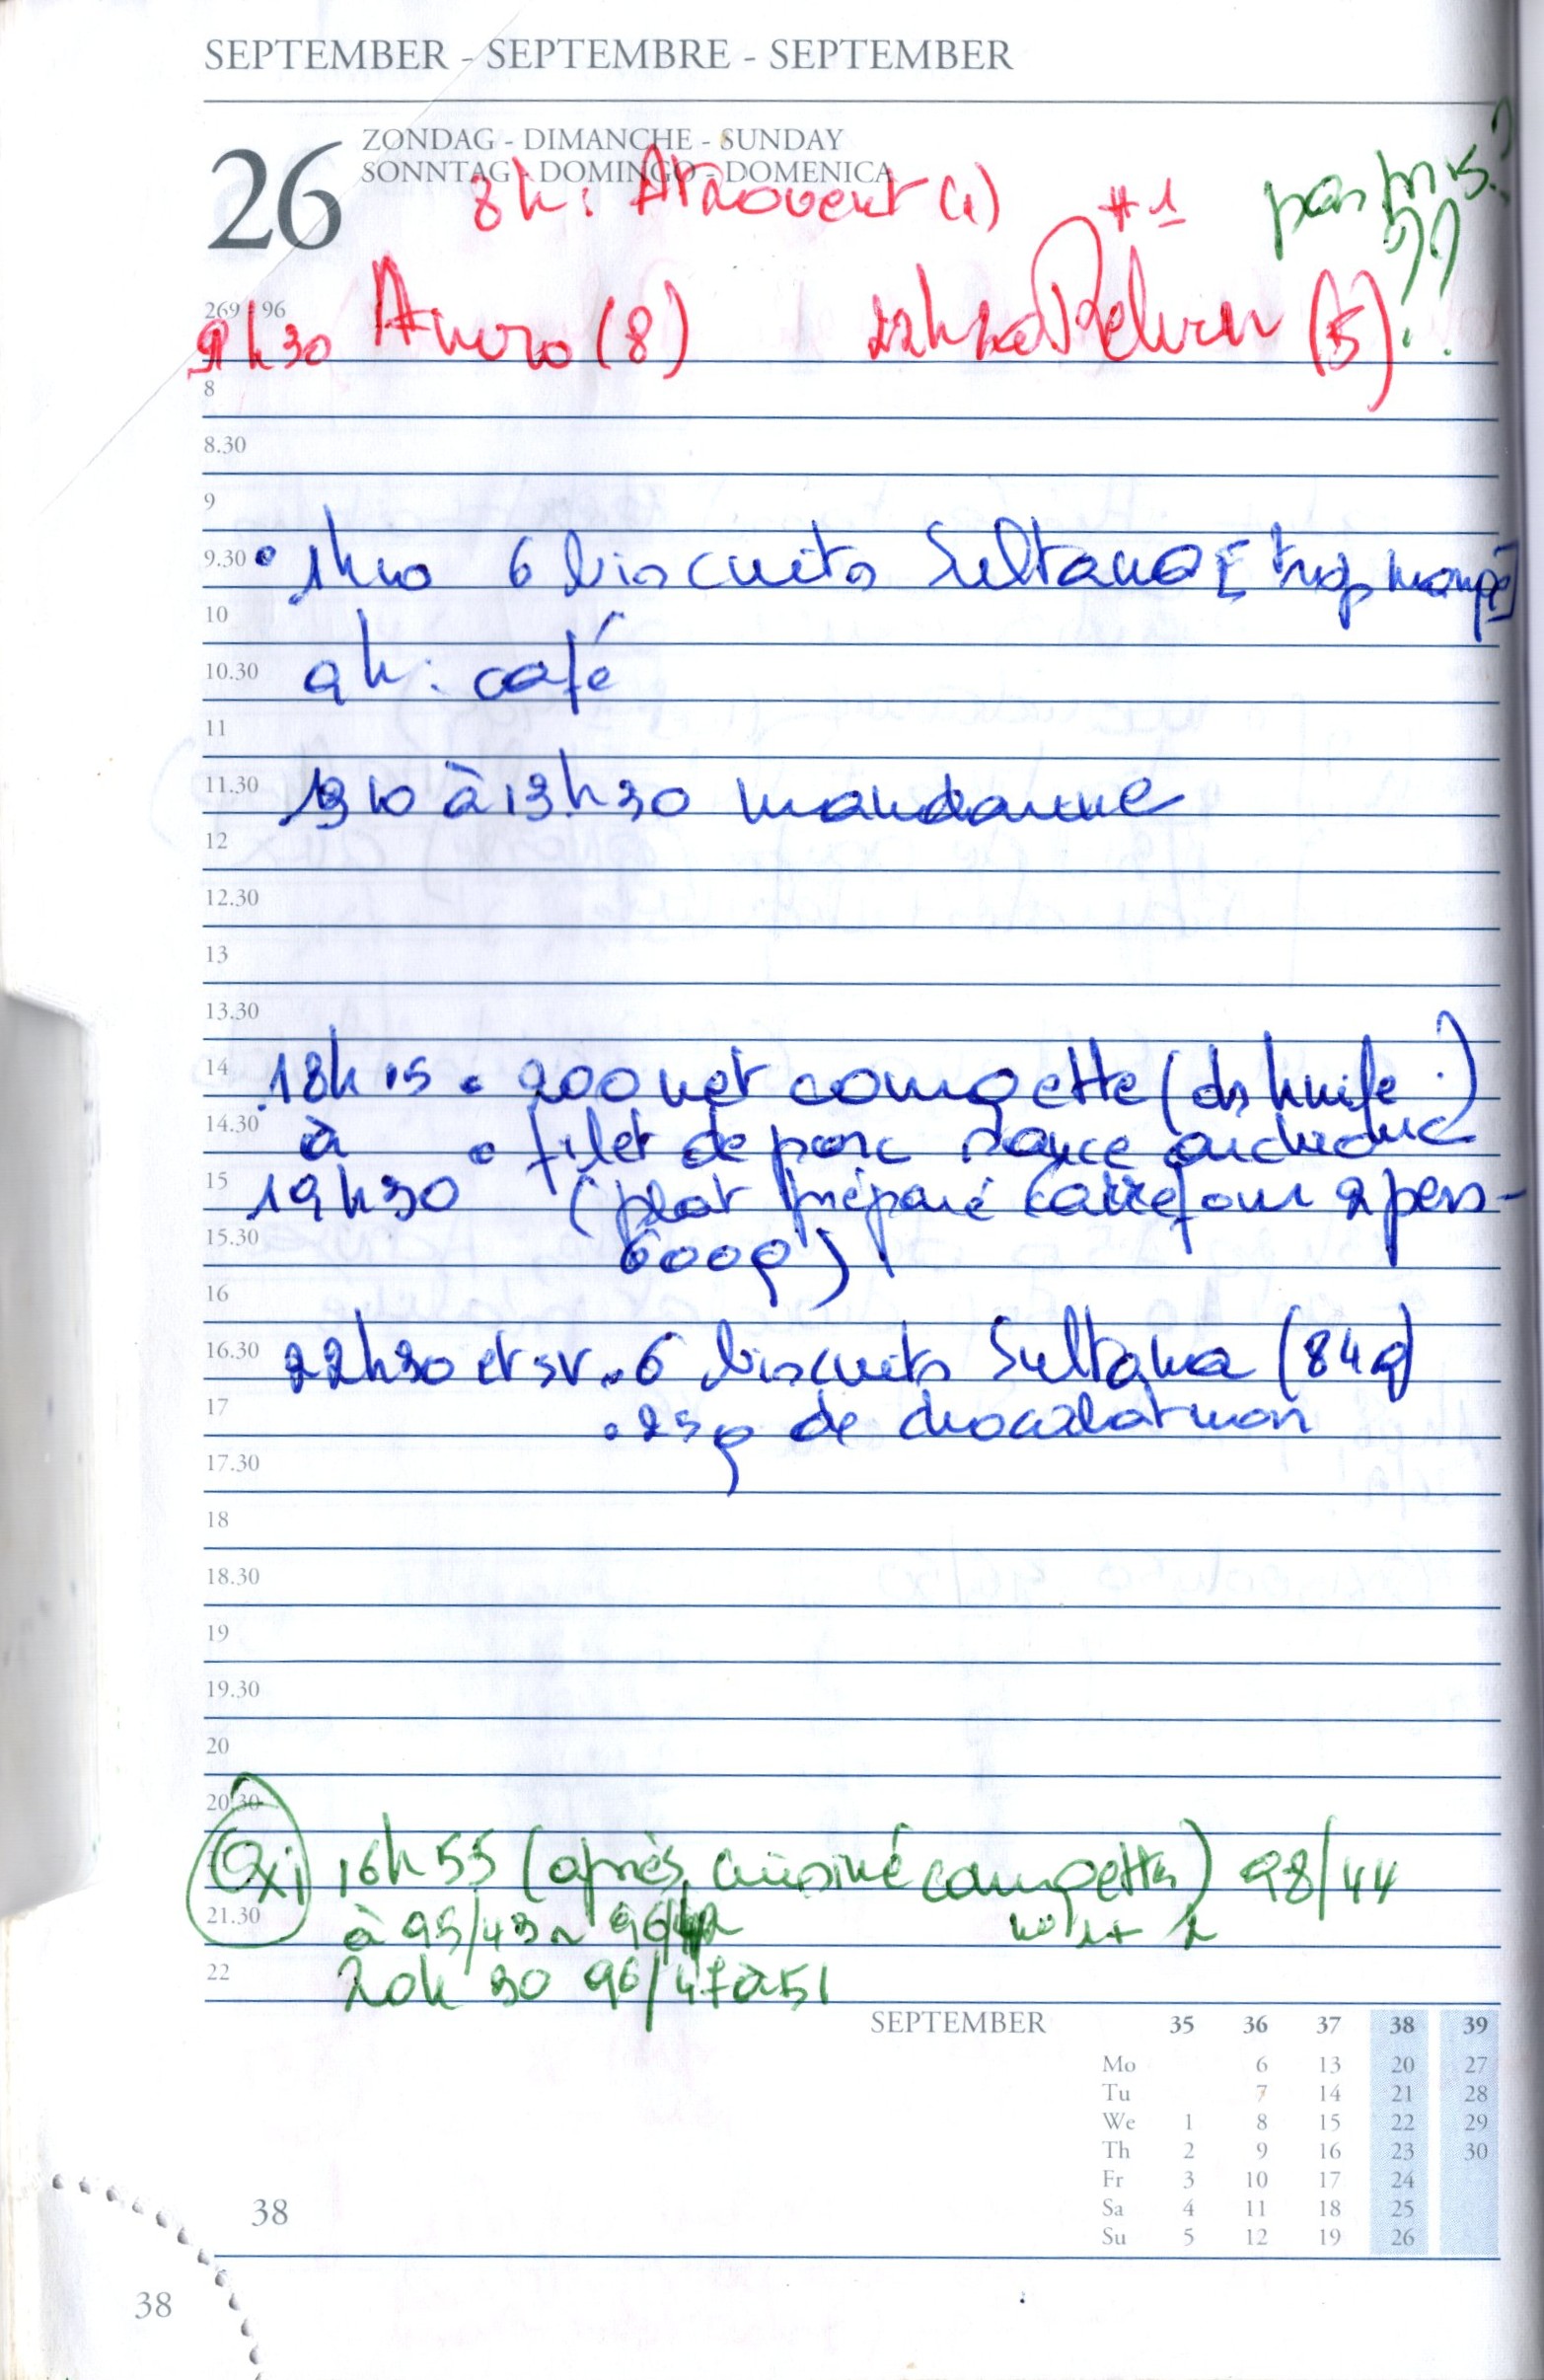 SEPTEMBER - SEPTEMBRE - SEPTEMBER
26
ZONDAG - DIMANCHE - SUNDAY
SONNTAG - DOMINGO - DOMENICA
8h: Atrovent (1) #1 pas pris?
269 - 96
9h30 (8) (5)
??
8
8.30
9
9.30 • 1h10 6 biscuits Sultana [trop mangé]
10
10.30 9h: café
11
11.30 13h10 à 13h30 mandarine
12
12.30
13
13.30
14 18h15 • 200 net courgette (ds huile)
14.30 à • filet de porc sauce archiduc
15 19h30 (plat préparé Carrefour 2 pers-
15.30 600g)
16
16.30 22h30 et sv • 6 biscuits Sultana (84g)
17 • 25g de chocolat noir
17.30
18
18.30
19
19.30
20
20.30
Oxi 16h55 (après cuisiné courgettes) 98/44
21.30 à 95/43 ~ 96/42
22 20h30 96/47 à 51
SEPTEMBER 35 36 37 38 39
Mo 6 13 20 27
Tu 7 14 21 28
We 1 8 15 22 29
Th 2 9 16 23 30
Fr 3 10 17 24
Sa 4 11 18 25
Su 5 12 19 26
38
38